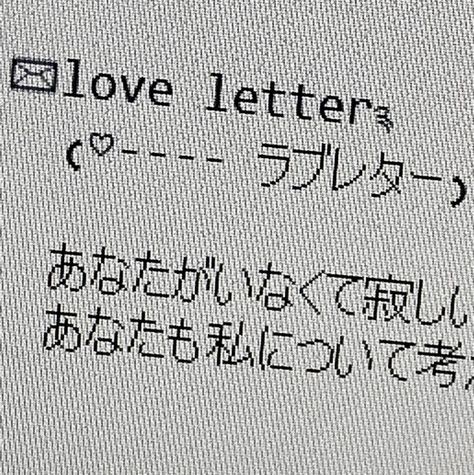 ✉love letter༄
(♡---- ラブレター)
あなたがいなくて寂しい
あなたも私について考